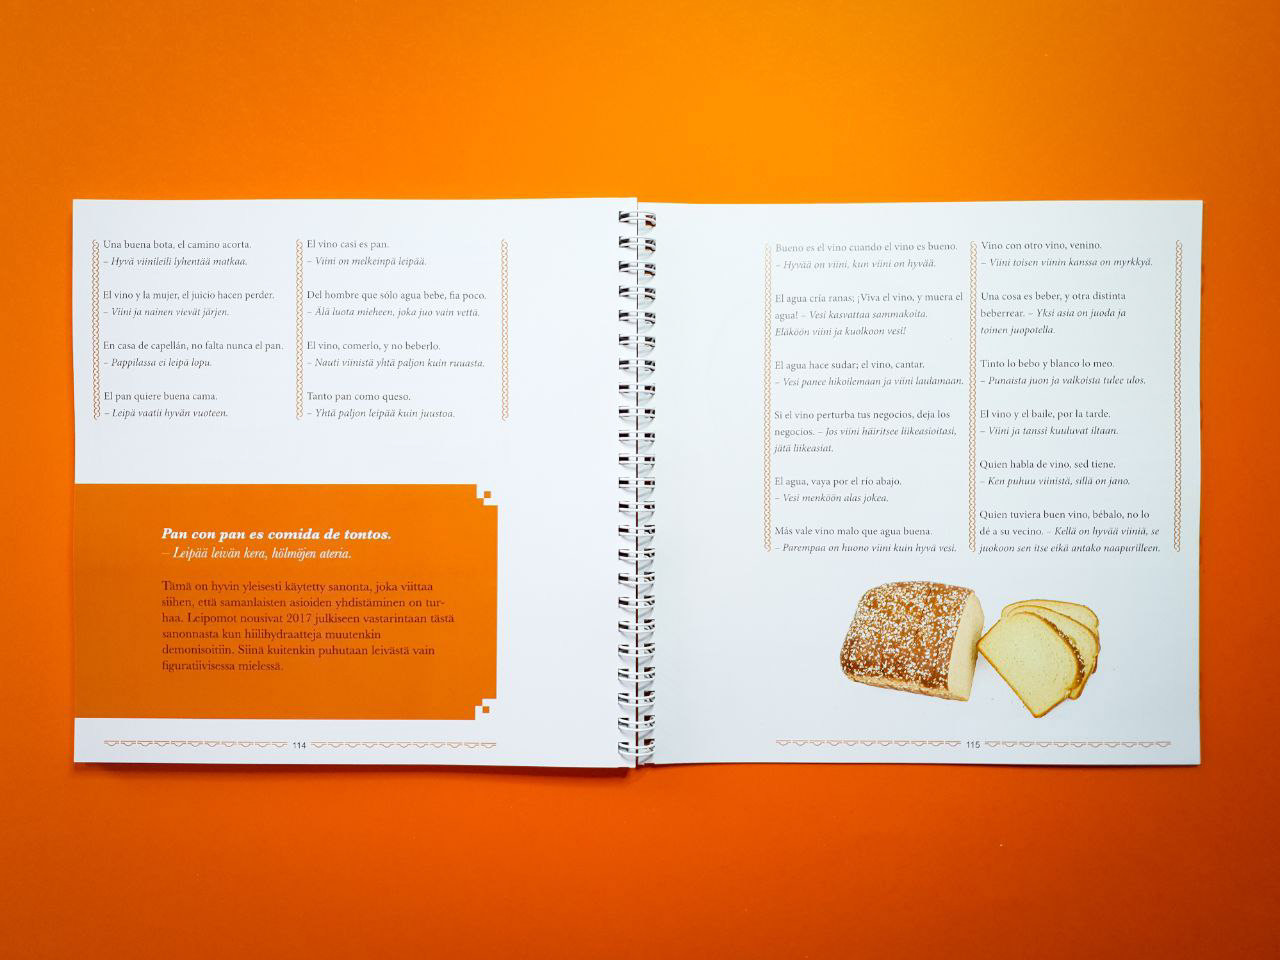 Una buena bota, el camino acorta.
– Hyvä viinileili lyhentää matkaa.
El vino y la mujer, el juicio hacen perder.
– Viini ja nainen vievät järjen.
En casa de capellán, no falta nunca el pan.
– Pappilassa ei leipä lopu.
El pan quiere buena cama.
– Leipä vaatii hyvän vuoteen.
El vino casi es pan.
– Viini on melkeinpä leipää.
Del hombre que sólo agua bebe, fia poco.
– Älä luota mieheen, joka juo vain vettä.
El vino, comerlo, y no beberlo.
– Nauti viinistä yhtä paljon kuin ruuasta.
Tanto pan como queso.
– Yhtä paljon leipää kuin juustoa.
Pan con pan es comida de tontos.
– Leipää leivän kera, hölmöjen ateria.
Tämä on hyvin yleisesti käytetty sanonta, joka viittaa
siihen, että samanlaisten asioiden yhdistäminen on tur-
haa. Leipomot nousivat 2017 julkiseen vastarintaan tästä
sanonnasta kun hiilihydraatteja muutenkin
demonisoitiin. Siinä kuitenkin puhutaan leivästä vain
figuratiivisessa mielessä.
114
Bueno es el vino cuando el vino es bueno.
– Hyvää on viini, kun viini on hyvää.
El agua cría ranas; ¡Viva el vino, y muera el
agua! – Vesi kasvattaa sammakoita.
Eläköön viini ja kuolkoon vesi!
El agua hace sudar; el vino, cantar.
– Vesi panee hikoilemaan ja viini laulamaan.
Si el vino perturba tus negocios, deja los
negocios. – Jos viini häiritsee liikeasioitasi,
jätä liikeasiat.
El agua, vaya por el río abajo.
– Vesi menköön alas jokea.
Más vale vino malo que agua buena.
– Parempaa on huono viini kuin hyvä vesi.
Vino con otro vino, venino.
– Viini toisen viinin kanssa on myrkkyä.
Una cosa es beber, y otra distinta
beberrear. – Yksi asia on juoda ja
toinen juopotella.
Tinto lo bebo y blanco lo meo.
– Punaista juon ja valkoista tulee ulos.
El vino y el baile, por la tarde.
– Viini ja tanssi kuuluvat iltaan.
Quien habla de vino, sed tiene.
– Ken puhuu viinistä, sillä on jano.
Quien tuviera buen vino, bébalo, no lo
dé a su vecino. – Kellä on hyvää viiniä, se
juokoon sen itse eikä antako naapurilleen.
115